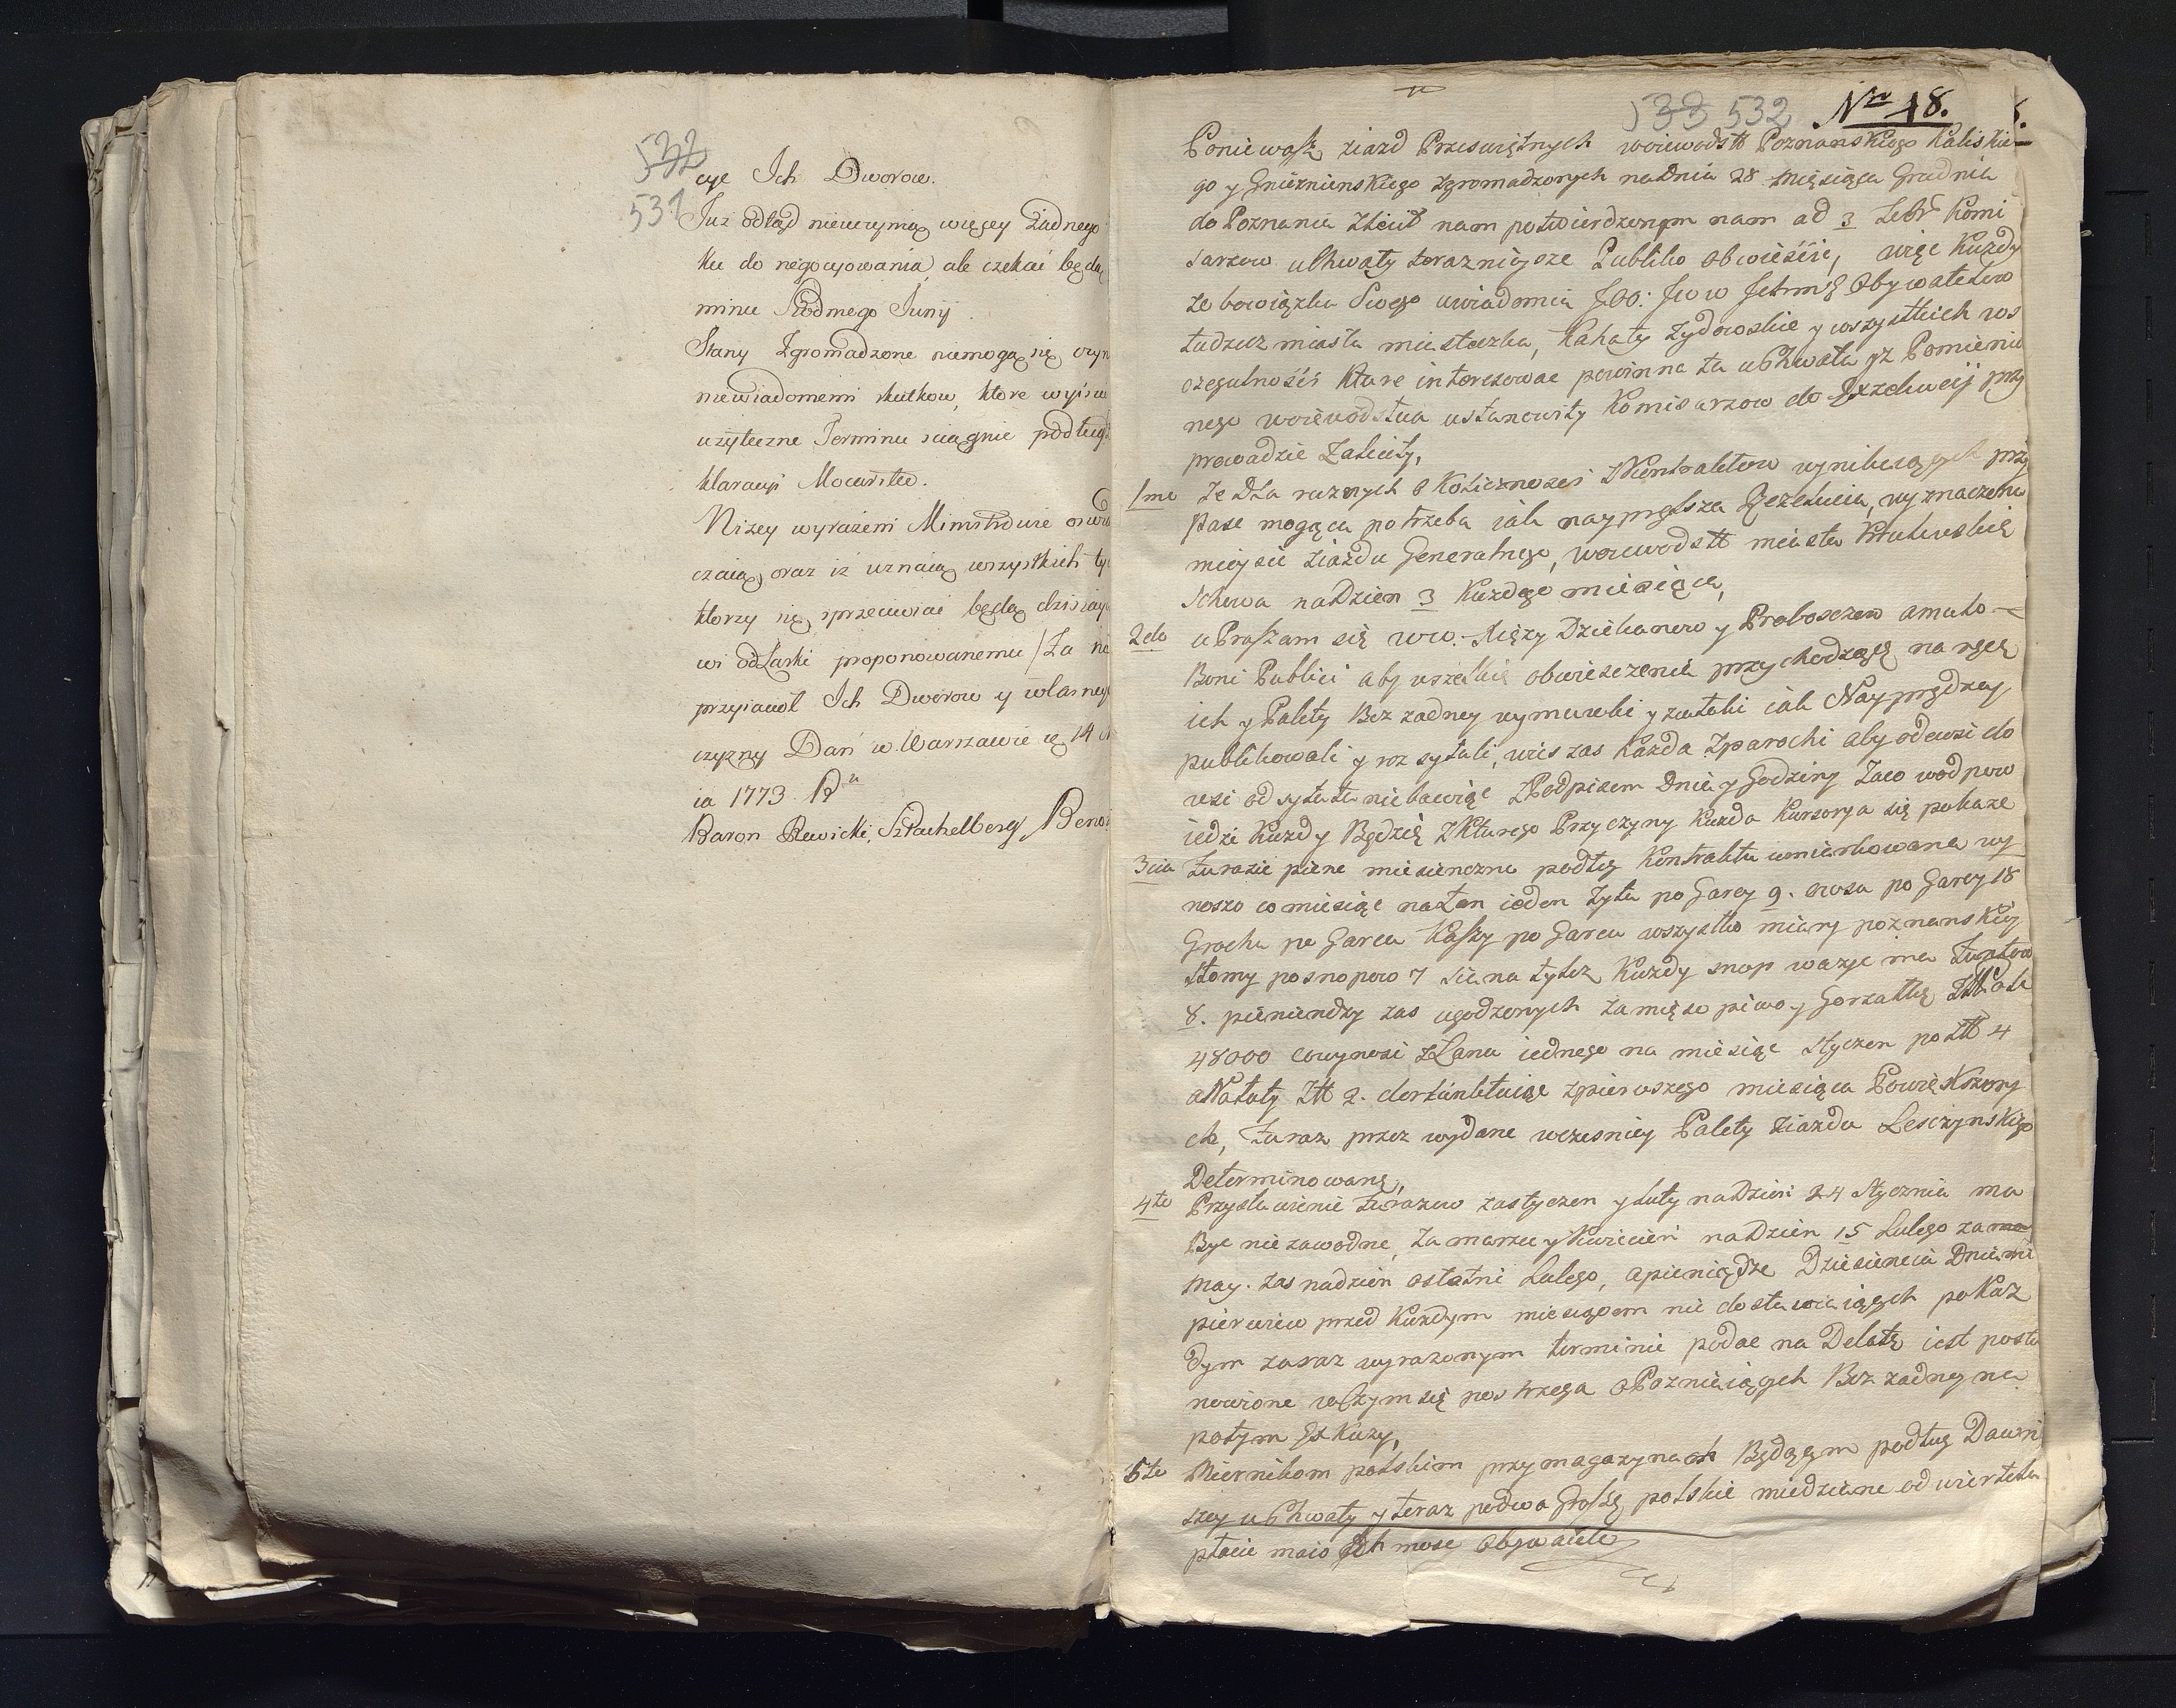 532
531
cye Ich Dworow.
Juz odtąd nieuczynią więcey żadnego
ku do negocyowania, ale czekać będą
minu siódmego Junij
Stany Zgromadzone niemogą się czyn
niewiadomemi skutkow, ktore wyisc
uzyteczne Terminu sciągnie podług
klaracyi Mocarstw.
Nizey wyrażeni Ministrowie oswia
czaią, oraz iż uznaią wszystkich ty
ktorzy się sprzeciwiać będą dzisiay
wi od Laski proponowanemu / Za nie
przyiaciół Ich Dworow y własney
czyzny Dan w Warszawie d. 14 M
ia 1773 Ru
Baron Rewicki, Sztachelberg, Benoi
533 532 Nro 18.
Poniewasz ziazd Przeswiętnych woiewodstt Poznanskiego Kaliskie-
go y Gnieznienskiego zgromadzonych na Dnia 28 Miesiąca Grudnia
do Poznania zlecił nam potwierdzonym nam ad 3 Febr Komi
sarzow uchwały terazniejsze Publiko obwieścic, więc Kazdy
ze bowiązku Swego uwiadomia JOO: JWW Ichmę Obywatelow
tudziez miasta miasteczka, Kahały zydowskie y wszystkich wos
czegulności Kture interesowac powinna ta uchwała yz Pomienio
nego woiewodstwa ustanowiły Komisarzow do Exzekucij przy
prowadzic Zaleciły,
1mo Ze Dla roznych okolicznosci z Kontraktow wynikaiących przy
pasc mogąca potrzeba iak nayprętsza Exzekucia, wyznaczenie
mieysce ziazdu Generalnego, woiewodstt miasta
schowa na Dzien 3 Kazdego miesiąca,
2do uPraszam się ww. Xięzy Dziekanow y Proboszczow amato-
Boni Publici aby wszelkie obwieszczenia przychodzące na ręce
ich y Palety Bez zadney wymowki y zwłoki iak Nayprędzey
publikowali y rozsyłali, wies zas Kazda z parochi aby odewsi do
wsi odsyłała niebawiąc z Podpisem Dnia y Godziny zaco wodpow
iedzi Kazdy Będzię z Kturego Przyczyny Kazda Kursorya się pokaze
3cia Furazie piene miesienczne podług Kontraktu umiarkowane wy
noszo co miesiąc na Łan ieden Zyta po Garcy 9. owsa po Garcy 18
Grochu po Garcu Kaszy po Garcu wszystko miary poznanskiey
słomy posnopow 7 siana tylez Kazdy snop wazyc ma Funtow
8. pieniendzy zas ugodzonych zamięso piwo y Gorzałkę
48000 cowynosi z Łanu iednego na miesiąc styczen po ztt 4
a Natuty Ztt 2. dla pierwszego miesiąca Powiększony
ch, Zaraz przez wydane wczesniey Palety ziazdu Lesczynskiego
Determinowane,
4to Przystawienie Furazow zastyczen y luty na Dzien 24 Stycznia ma
Byc niezawodne, za marzec y Kwiecień na Dzien 15 Lutego za
may. zas nadzien ostatni Lutego, apieniądze Dziesiencia Dniami
pierwiew przed Kazdym miesiącem nie dostawiaiących poKaz
dym zaraz wyrazonym terminie podac na Delatę iest posta
nowione woczym się postrzega oPozniaiących Bez zadney na
potym Exkuzy,
5to Miernikom polskim przy magazynach Będącym podług Dawni
szey uchwały y teraz podwa Grosze polskie miedziane od wiertela
płacic maio Ich mosc Obywatele